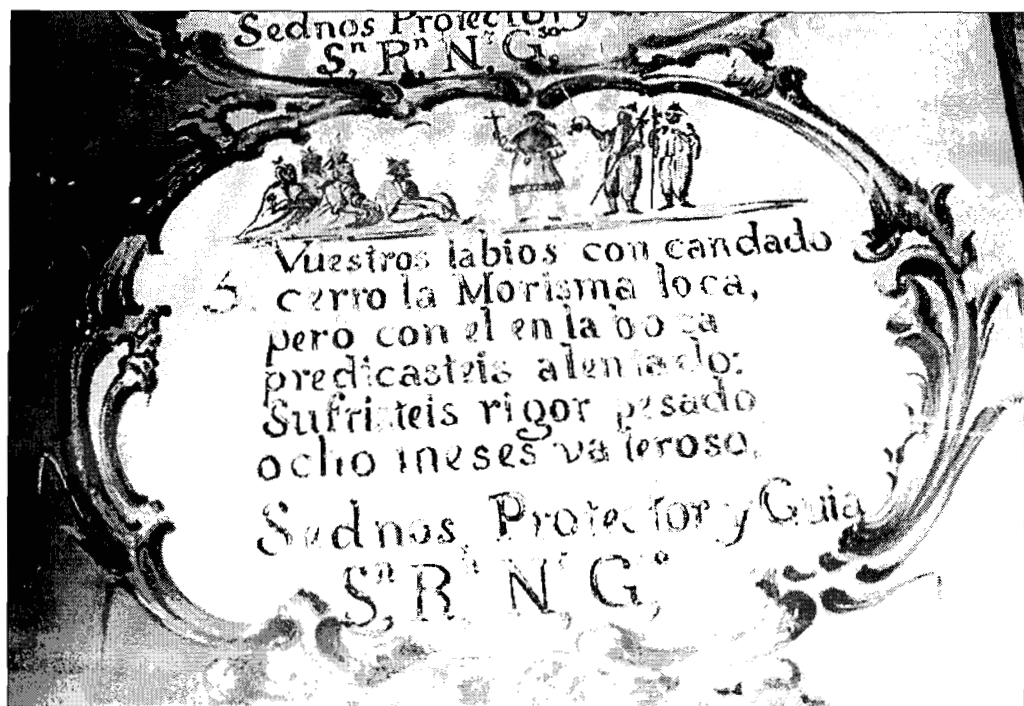 Sednos Protector y
Sⁿ, Rⁿ, N, Gˢᵒ,
Vuestros labios con candado
5. cerro la Morisma loca,
pero con el en la boca
predicasteis alentado:
Sufristeis rigor pesado
ocho meses valeroso,
Sednos Protector y Guia
Sⁿ, R, N, Gᵒ,